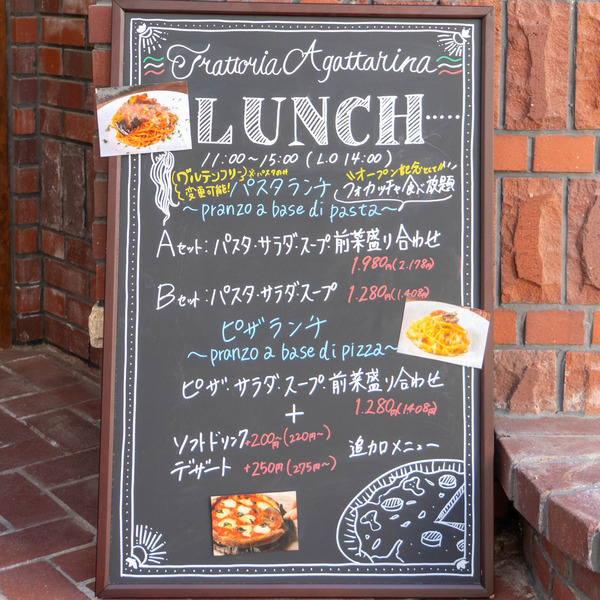 Trattoria Agattarina
LUNCH
11:00~15:00 (L.O 14:00)
(グルテンフリー ※パスタのみ
変更可能!)
パスタランチ
\\オープン記念として//
フォカッチャ食べ放題
~pranzo a base di pasta~
Aセット:パスタ・サラダ・スープ・前菜盛り合わせ
1.980円(2.178円)
Bセット:パスタ・サラダ・スープ 1.280円(1.408円)
ピザランチ
~pranzo a base di pizza~
ピザ・サラダ・スープ・前菜盛り合わせ
1.280円(1408円)
+
ソフトドリンク +200円~(220円~)
追加メニュー
デザート +250円(275円~)